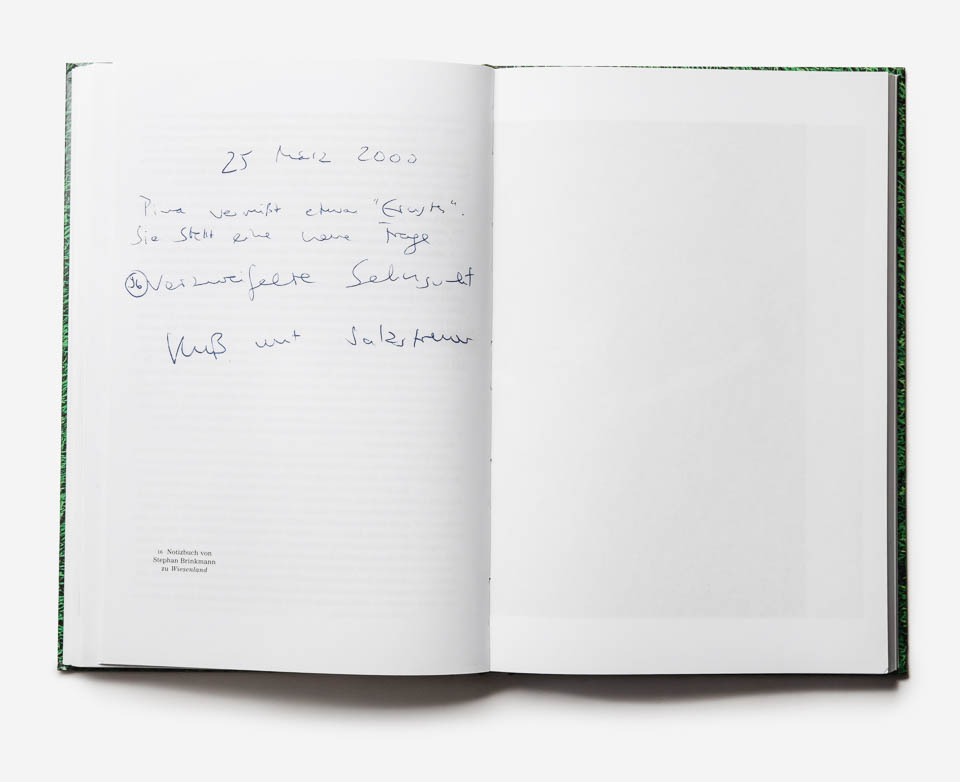 25 März 2000
Pina vermißt etwas "Ernstes".
Sie stellt eine neue Frage
Verzweifelte Sehnsucht
Kuß mit Salzstreuer
16 Notizbuch von
Stephan Brinkmann
zu Wiesenland